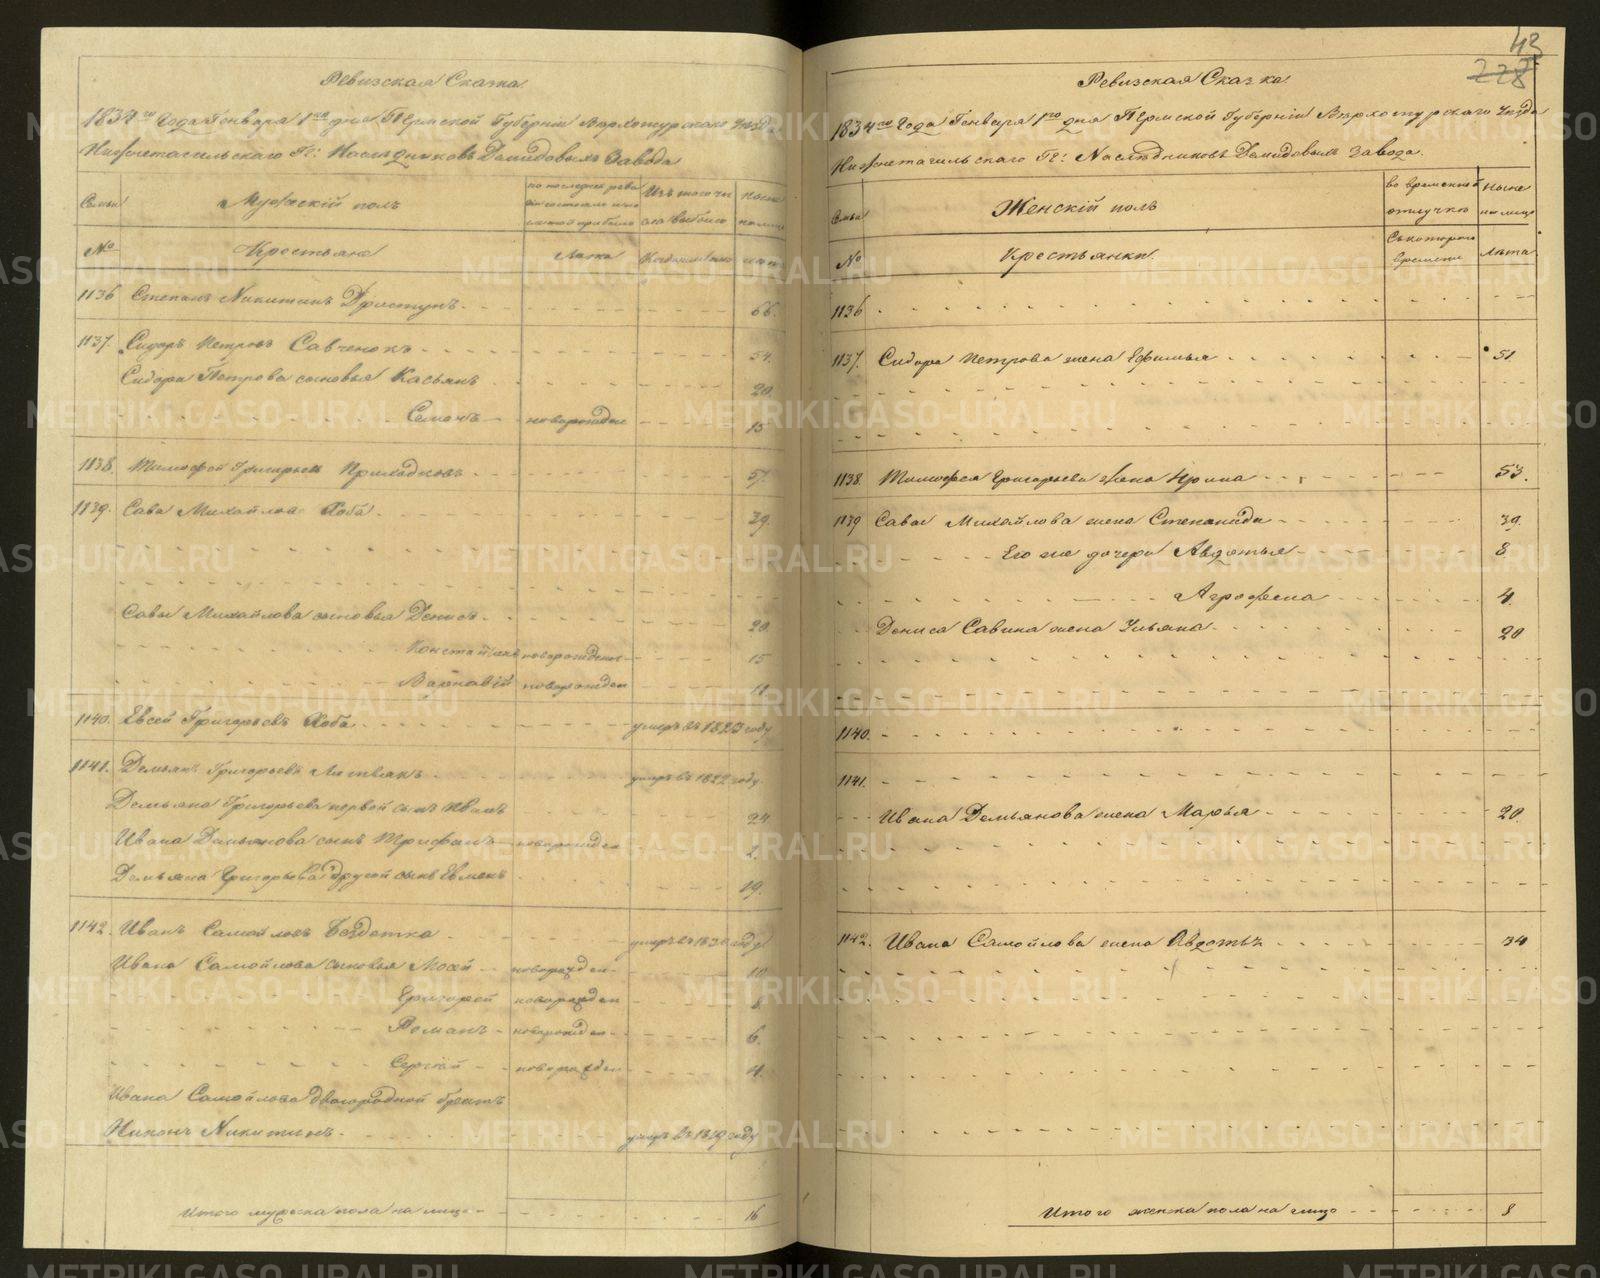 Ревизская Сказка
1834го Года Генваря 1го дня Пермской Губернии Верхотурскаго Уезда
Нижнетагильскаго Гг: Наследниковъ Демидовыхъ Завода
Семьи
Мужескій полъ
по последней ревизіи состояло и после того прибыло
Изъ того числа выбыло
Ныне на лицо
№
Крестьяне
Лета
Когда именно
лета
1136 Степанъ Никитинъ 66.
1137. Сидоръ Петровъ Савченокъ 54.
Сидора Петрова сыновья Касьянъ 20.
Семенъ новорожден 15
1138. Тимофей Григорьевъ Приходковъ 57.
1139. Сава Михайловъ Хоба 39.
Савы Михайлова сыновья Денисъ 20.
новорожденъ 15
Варлавій новорожден 11
1140. Евсей Григорьевъ Хоба умеръ въ 1823 году
1141. Демьянъ Григорьевъ Литвякъ умеръ въ 1822 году
Демьяна Григорьева первой сынъ Иванъ 24
Ивана Демьянова сынъ Трифанъ новорожден
Демьяна Григорьева другой сынъ Евменъ 19.
1142. Иванъ Самойловъ Бездетка умеръ въ 1830 году
Ивана Самойлова сыновья Мосей новорожден 10
Григорей новорожден 8
Романъ новорожден 6.
Сергій новорожден 4.
Ивана Самойлова двоюродной братъ
Никонъ Никитинъ умеръ въ 1819 году
Итого мужска пола на лицо 16
43
228
Ревизская Сказка
1834го Года Генваря 1го дня Пермской Губерніи Верхотурскаго Уезда
Нижнетагильскаго Гг: Наследниковъ Демидовыхъ Завода.
Семьи
Женскій полъ
во временной отлучке
Ныне на лицо
№
Крестьянки.
Съ котораго времени
Лета
1136
1137. Сидора Петрова жена Ефимья 51.
1138. Тимофея Григорьева жена Ирина 53.
1139 Савы Михайлова жена Степанида 39.
Его же дочери Авдотья 8
Агрофена 4.
Дениса Савина жена Ульяна 20
1140.
1141.
Ивана Демьянова жена Марья 20.
1142. Ивана Самойлова жена Авдотья 34
Итого женска пола на лицо 8
METRIKI.GASO-URAL.RU